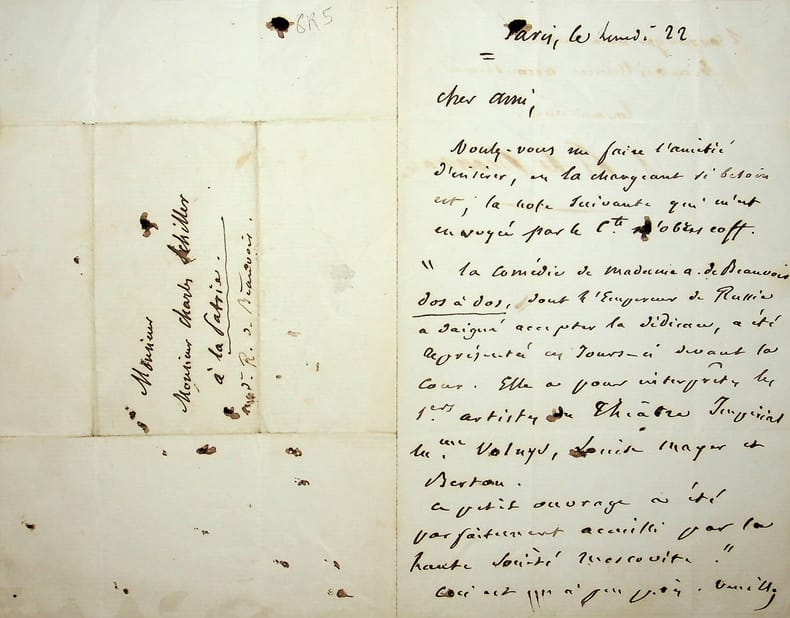 8R5
Monsieur
Monsieur Charles Schiller
à la Patrie.
de R. de Beauvoir.
Paris, le lundi 22
cher ami,
Voulez-vous me faire l'amitié
d'insérer, en la changeant si besoin
est, la note suivante qui m'est
envoyée par le Cte d'obrescoff.
" la comédie de madame a. de Beauvoir
dos à dos, dont l'Empereur de Russie
a daigné accepter la dédicace, a été
représentée ces jours-ci devant la
cour. Elle a pour interprêtes les
1ers artistes du Théâtre Impérial
Mme Volnys, Louise Mayer et
Berton.
ce petit ouvrage a été
parfaitement accueilli par la
haute société moscovite. "
Ceci est à peu près. Veuillez